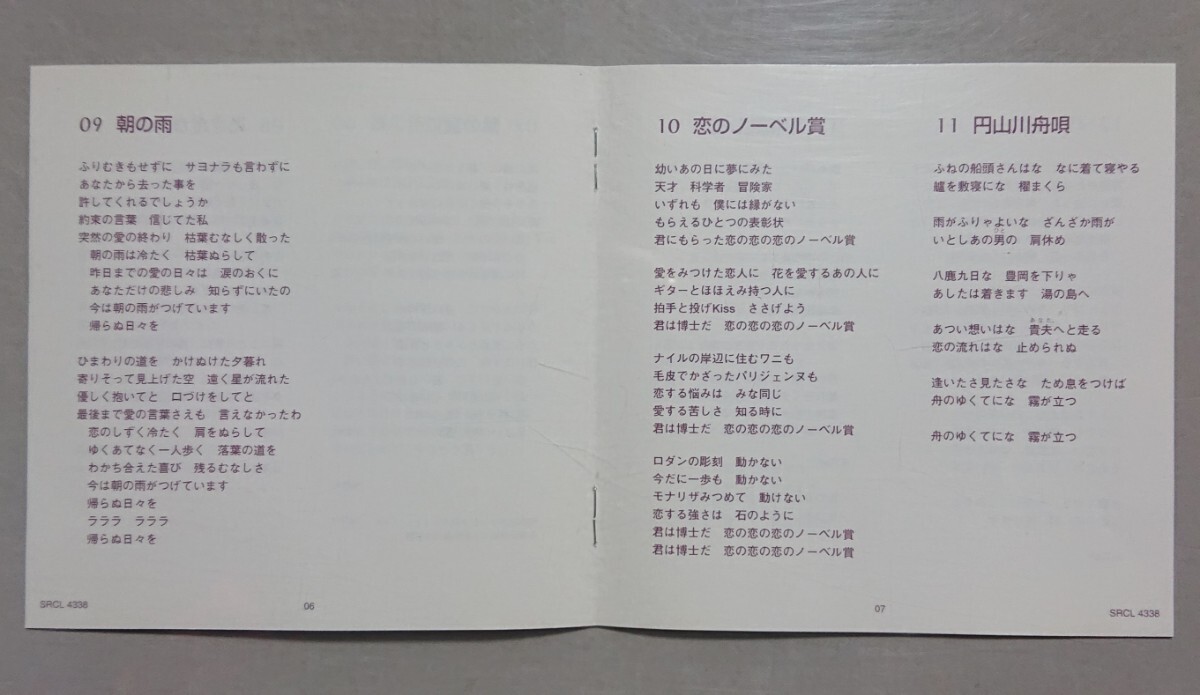 09 朝の雨
ふりむきもせずに　サヨナラも言わずに
あなたから去った事を
許してくれるでしょうか
約束の言葉　信じてた私
突然の愛の終わり　枯葉むなしく散った
朝の雨は冷たく　枯葉ぬらして
昨日までの愛の日々は　涙のおくに
あなただけの悲しみ　知らずにいたの
今は朝の雨がつげています
帰らぬ日々を
ひまわりの道を　かけぬけた夕暮れ
寄りそって見上げた空　遠く星が流れた
優しく抱いてと　口づけをしてと
最後まで愛の言葉さえも　言えなかったわ
恋のしずく冷たく　肩をぬらして
ゆくあてなく一人歩く　落葉の道を
わかち合えた喜び　残るむなしさ
今は朝の雨がつげています
帰らぬ日々を
ラララ　ラララ
帰らぬ日々を
SRCL 4338
06
10 恋のノーベル賞
幼いあの日に夢にみた
天才　科学者　冒険家
いずれも　僕には縁がない
もらえるひとつの表彰状
君にもらった恋の恋の恋のノーベル賞
愛をみつけた恋人に　花を愛するあの人に
ギターとほほえみ持つ人に
拍手と投げKiss　ささげよう
君は博士だ　恋の恋の恋のノーベル賞
ナイルの岸辺に住むワニも
毛皮でかざったパリジェンヌも
恋する悩みは　みな同じ
愛する苦しさ　知る時に
君は博士だ　恋の恋の恋のノーベル賞
ロダンの彫刻　動かない
今だに一歩も　動かない
モナリザみつめて　動けない
恋する強さは　石のように
君は博士だ　恋の恋の恋のノーベル賞
君は博士だ　恋の恋の恋のノーベル賞
11 円山川舟唄
ふねの船頭さんはな　なに着て寝やる
艫を敷寝にな　櫂まくら
雨がふりゃよいな　ざんざか雨が
いとしあの男の　肩休め
八鹿九日な　豊岡を下りゃ
あしたは着きます　湯の島へ
あつい想いはな　貴夫へと走る
恋の流れはな　止められぬ
逢いたさ見たさな　ため息をつけば
舟のゆくてにな　霧が立つ
舟のゆくてにな　霧が立つ
07
SRCL 4338